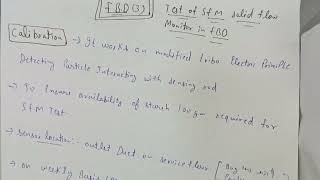 FBD(3)
Test of SFM solid flow
Monitor in FBD
Calibration → It works on modified tribo Electric Principle
Detecting Particle Interacting with sensing rod
→ To Ensure availability of starch 100g- required for
SFM Test
→ sensor location:- outlet Duct on service floor
→ on weekly Basis